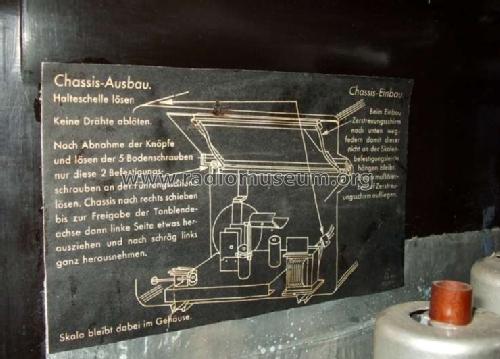 Chassis-Ausbau.
Halteschelle lösen
Keine Drähte ablöten.
Nach Abnahme der Knöpfe
und lösen der 5 Bodenschrauben
nur diese 2 Befestigungs-
schrauben an der Führungsschiene
lösen. Chassis nach rechts schieben
bis zur Freigabe der Tonblenden-
achse dann linke Seite etwas her-
ausziehen und nach schräg links
ganz herausnehmen.
Skala bleibt dabei im Gehäuse.
Chassis-Einbau.
Beim Einbau
Zerstreuungsschirm
nach unten weg-
federn damit dieser
nicht an der Skalen-
befestigungsleiste
hängen bleibt.
Zerstreu-
ungsschirm aufliegen.
www.radiomuseum.org